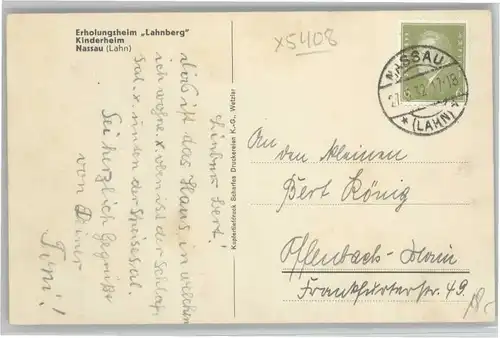 Erholungsheim „Lahnberg"
Kinderheim
Nassau (Lahn)
x5408
NASSAU
* (LAHN) *
Lieber Bert!
das ist das Haus in welchem
ich wohne. x oben ist der Schlaf,
sal. x unten der Speisesal.
Sei herzlich gegrüßt
von Deiner
Kupfertiefdruck Scharfes Druckereien K.-G., Wetzlar
An
den kleinen
Bert König
Offenbach-Main
Frankfurterstr. 49